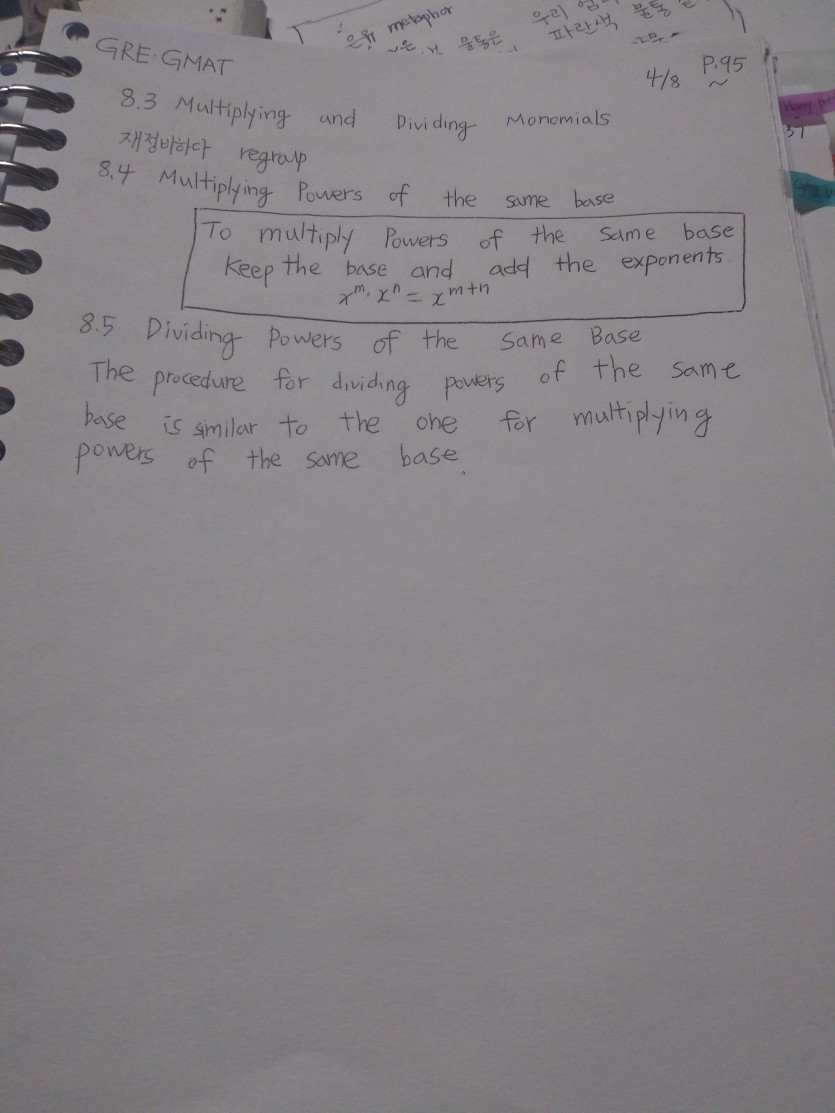 은유 metaphor
우리
물통
물통은
파란색
GRE·GMAT
4/8 P.95
8.3 Multiplying and Dividing Monomials
재정비하다 regroup
8.4 Multiplying Powers of the same base
To multiply Powers of the Same base
Keep the base and add the exponents.
x^m · x^n = x^{m+n}
8.5 Dividing Powers of the Same Base
The procedure for dividing powers of the same
base is similar to the one for multiplying
powers of the same base.